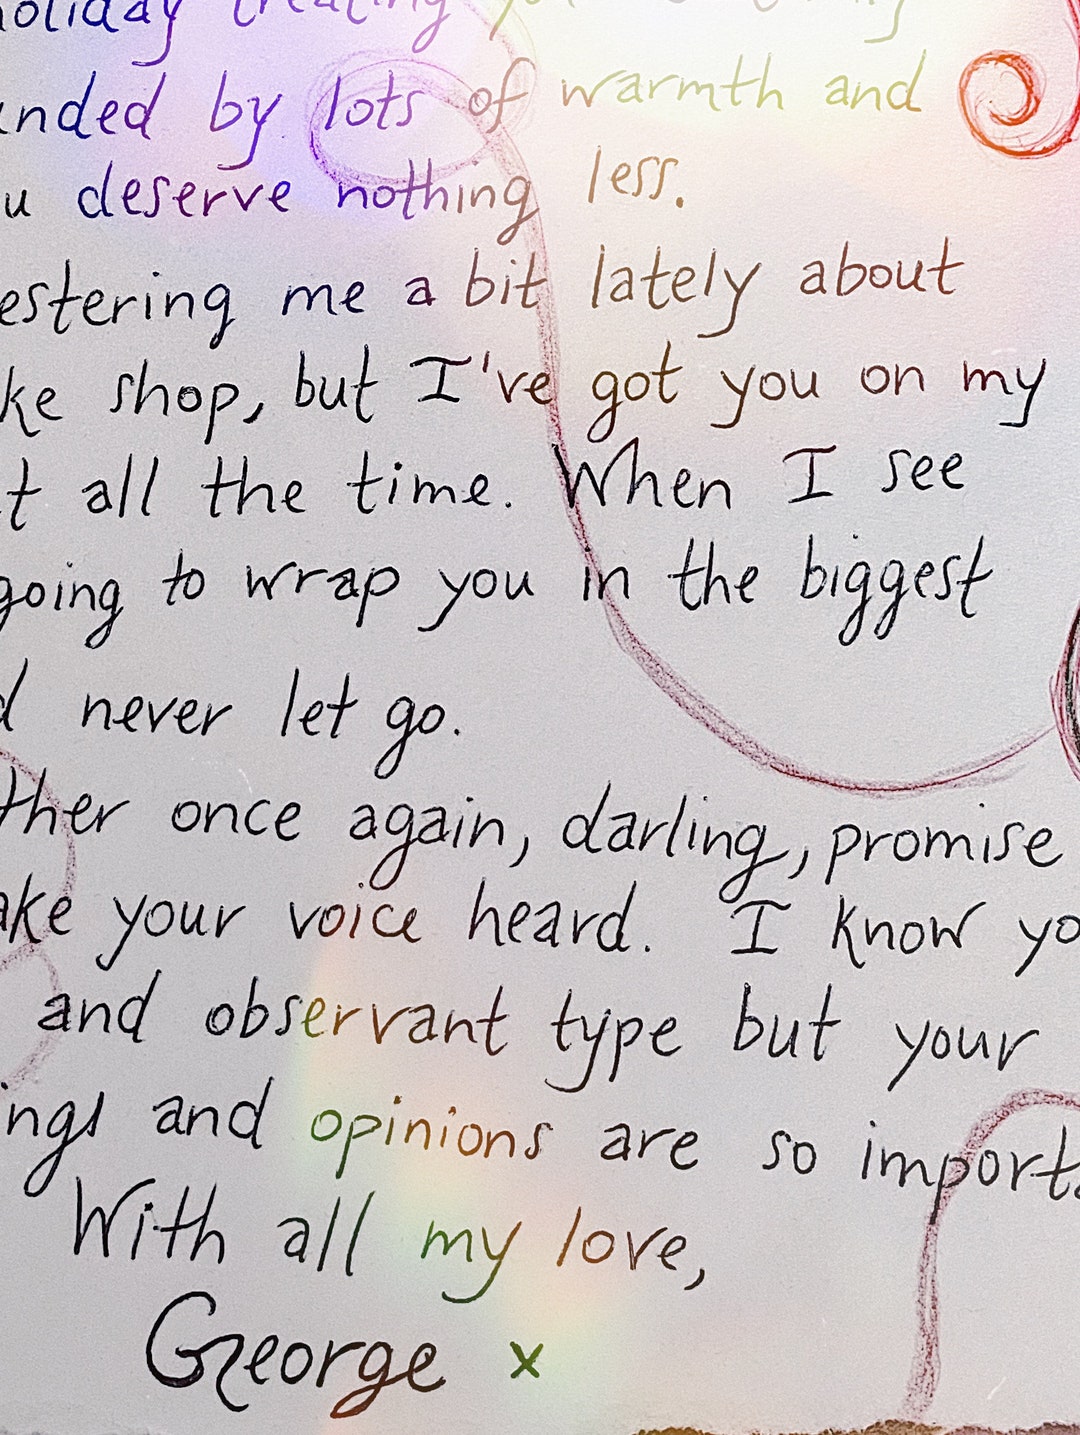 holiday treating you
unded by lots of warmth and
u deserve nothing less.
estering me a bit lately about
ke shop, but I've got you on my
t all the time. When I see
going to wrap you in the biggest
d never let go.
ther once again, darling, promise
ake your voice heard. I know yo
and observant type but your
ings and opinions are so importa
With all my love,
George x